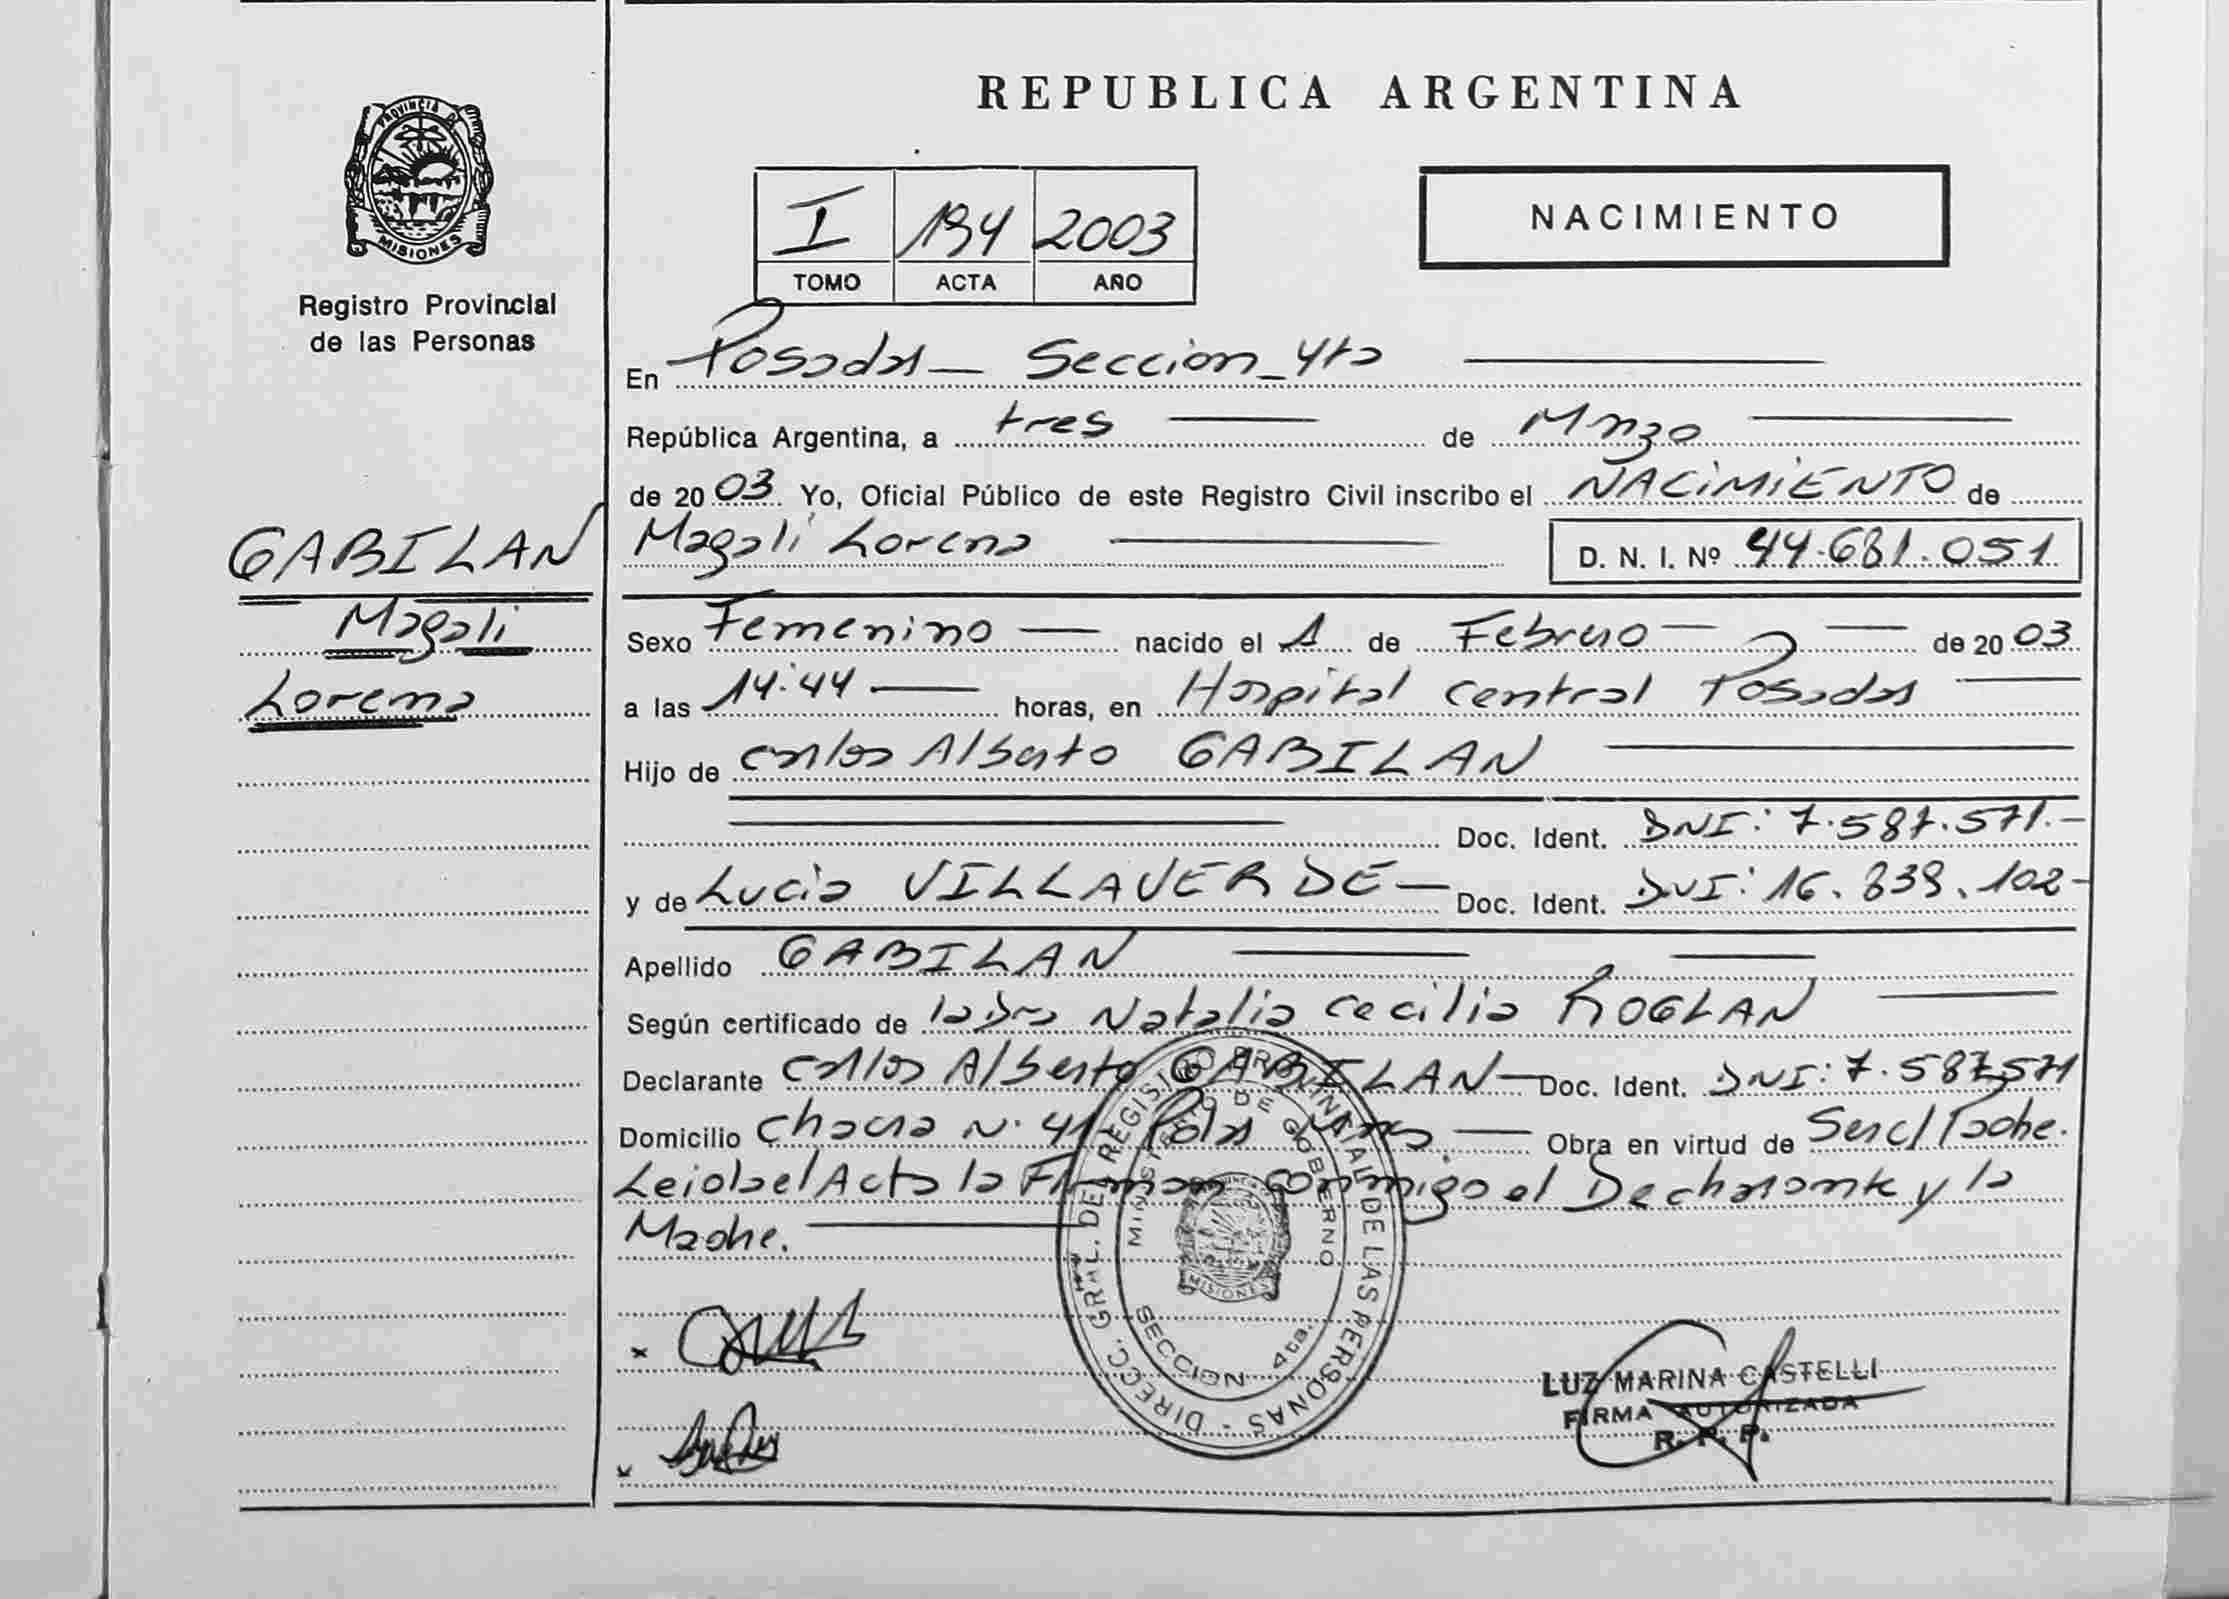 REPUBLICA ARGENTINA
PROVINCIA DE
MISIONES
Registro Provincial
de las Personas
I 194 2003
TOMO ACTA AÑO
NACIMIENTO
En Posadas - Seccion 4ta
República Argentina, a tres de Marzo
de 2003 Yo, Oficial Público de este Registro Civil inscribo el NACIMIENTO de
Magali Lorena D. N. I. Nº 44.681.051
GABILAN
Magali
Lorena
Sexo Femenino nacido el 1 de Febrero de 2003
a las 14:44 horas, en Hospital Central Posadas
Hijo de Carlos Alberto GABILAN
Doc. Ident. DNI: 7.587.571.-
y de Lucia VILLAVERDE - Doc. Ident. DNI: 16.839.102-
Apellido GABILAN
Según certificado de la Dra Natalia Cecilia ROGLAN
Declarante Carlos Alberto GABILAN - Doc. Ident. DNI: 7.587.571
Domicilio Chacra N. 41- Pdas Mnes - Obra en virtud de Ser el Padre.
Leida el Acta la Firman Conmigo el Declarante y la
Madre.
DIRECC. GRAL. DEL REGISTRO PROVINCIAL DE LAS PERSONAS -
MINISTERIO DE GOBIERNO
MISIONES
SECCION 4ta.
LUZ MARINA CASTELLI
FIRMA AUTORIZADA
R. P. P.